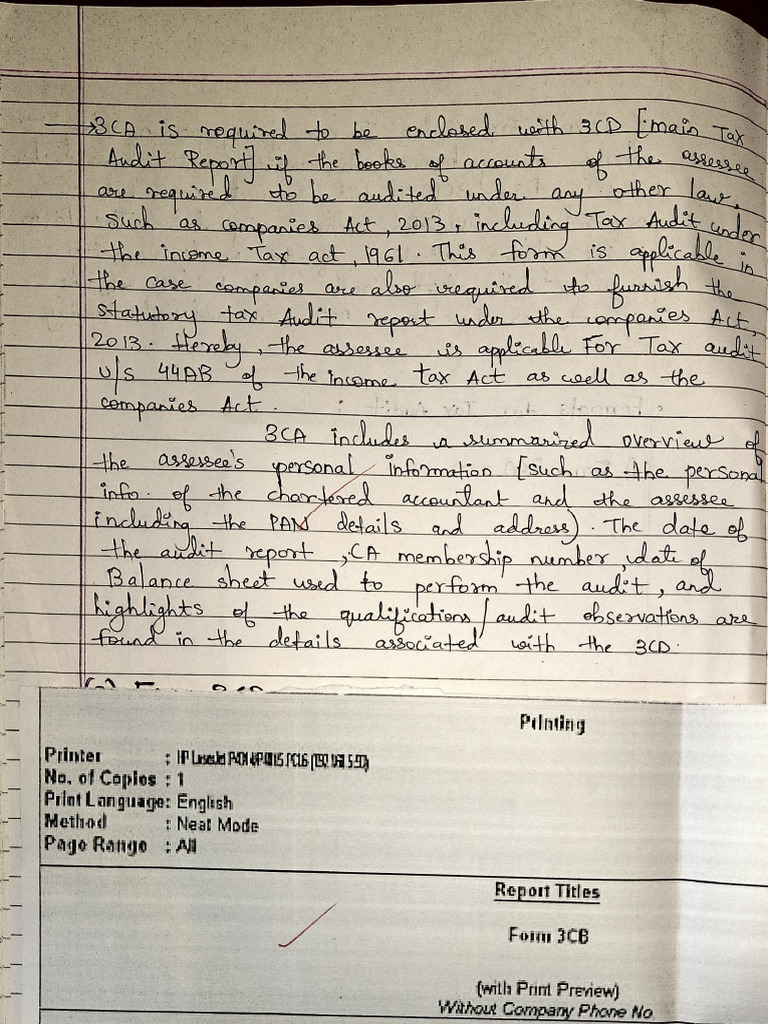 → 3CA is required to be enclosed with 3CD [main Tax
Audit Report] if the books of accounts of the assessee
are required to be audited under any other law,
such as companies Act, 2013, including Tax Audit under
the income Tax act, 1961. This form is applicable in
the case companies are also required to furnish the
statutory tax Audit report under the companies Act,
2013. Hereby, the assessee is applicable For Tax audit
u/s 44AB of the income tax Act as well as the
companies Act.
3CA includes a summarized overview of
the assessee's personal information [such as the personal
info. of the chartered accountant and the assessee
including the PAN details and address). The date of
the audit report, CA membership number, date of
Balance sheet used to perform the audit, and
highlights of the qualifications/audit observations are
found in the details associated with the 3CD.
Printing
Printer : HP LaserJet
No. of Copies : 1
Print Language: English
Method : Neat Mode
Page Range : All
Report Titles
Form 3CB
(with Print Preview)
Without Company Phone No